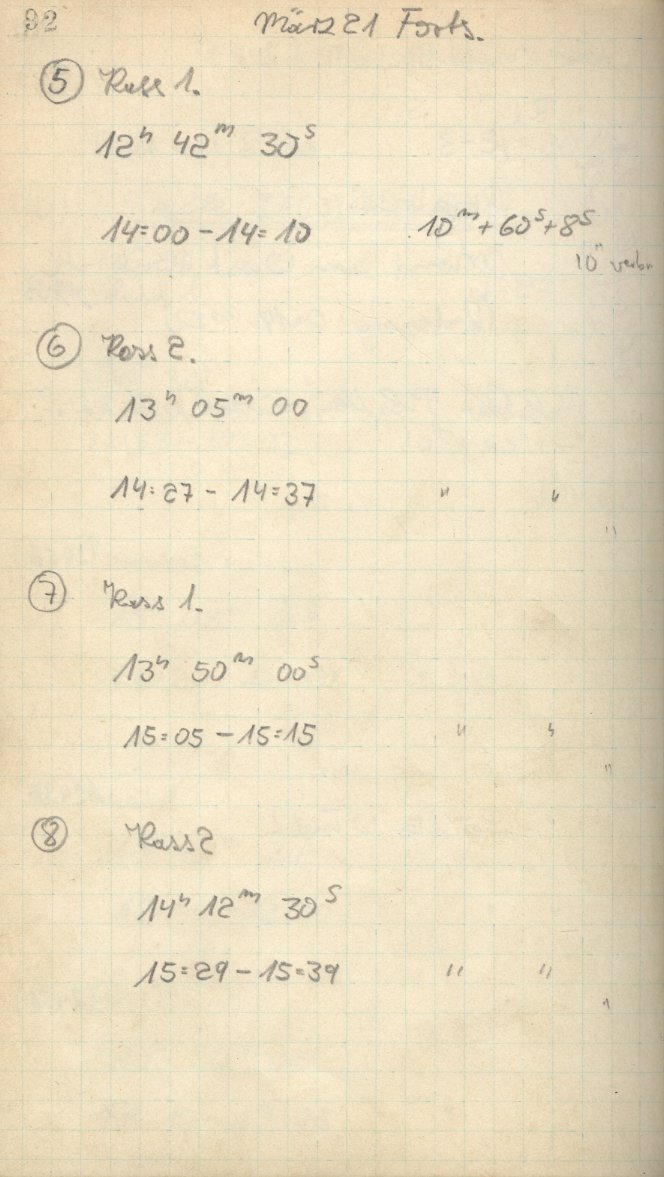 92
März 21 Forts.
⑤ Kass 1.
12ʰ 42ᵐ 30ˢ
14=00 – 14=10 10ᵐ+60ˢ+8ˢ
10ᵐ verbr
⑥ Kass 2.
13ʰ 05ᵐ 00
14:27 – 14=37 " "
"
⑦ Kass 1.
13ʰ 50ᵐ 00ˢ
15=05 – 15=15 " "
"
⑧ Kass 2
14ʰ 12ᵐ 30ˢ
15=29 – 15=39 " "
"